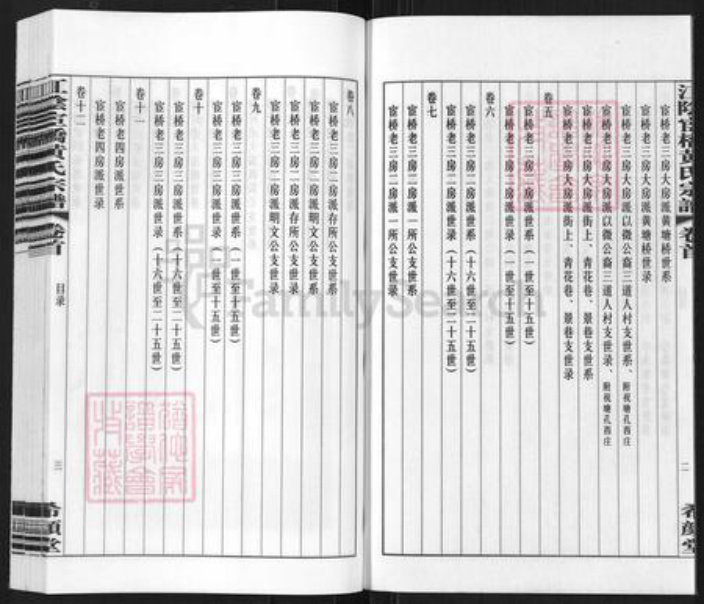 江陰官橋黃氏宗譜 卷首
二
希顏堂
宦桥老三房大房派黄塘桥世系
宦桥老三房大房派黄塘桥世录
宦桥老三房大房派以微公裔三道人村支世系、附祝塘孔西庄
宦桥老三房大房派以微公裔三道人村支世录、附祝塘孔西庄
宦桥老三房大房派街上、青花巷、景巷支世系
宦桥老三房大房派街上、青花巷、景巷支世录
卷五
宦桥老三房二房派世系（一世至十五世）
宦桥老三房二房派世录（一世至十五世）
卷六
宦桥老三房二房派世系（十六世至二十五世）
宦桥老三房二房派世录（十六世至二十五世）
卷七
宦桥老三房二房派一所公支世系
宦桥老三房二房派一所公支世录
卷八
宦桥老三房二房派存所公支世系
宦桥老三房二房派存所公支世录
宦桥老三房二房派明文公支世系
宦桥老三房二房派明文公支世录
卷九
宦桥老三房三房派世系（一世至十五世）
宦桥老三房三房派世录（一世至十五世）
卷十
宦桥老三房三房派世系（十六世至二十五世）
宦桥老三房三房派世录（十六世至二十五世）
卷十一
宦桥老四房派世系
宦桥老四房派世录
卷十二
江陰官橋黃氏宗譜 卷首
目录
三
希顏堂
FamilySearch